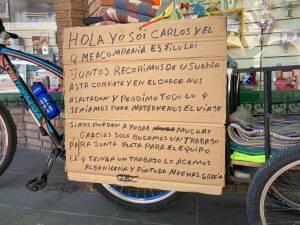 HOLA YO SOI CARLOS Y EL
Q ME ACOMPAÑIA ES FILULAI
JUNTOS RECORIMOS DE USUAHIA
ASTA CORRIETE Y EN EL CHACO NOS
ASALTARON Y PERDIMO TODO LO Q
TENIAMOS PARA MATENERNOS EL VIAJE
SI NOS PUEDEN AYUDAR MUCHAS
GRACIAS SOLO BUCAMOS UN TRABAJO
PARA JUNTA PLATA PARA EL EQUIPO
EL Q TENGA UN TRABAJO LO ACEMOS
ALBAÑILERIA Y PINTURA MUCHAS GRACIA